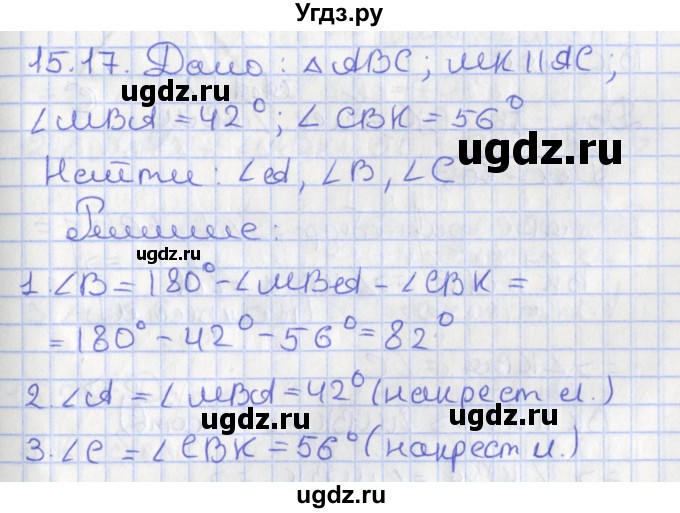 Угдз.ру
15.17. Дано: △ABC; MK || AC;
ugdz.ru
∠MBA = 42°; ∠CBK = 56°
ugdz.ru
Найти: ∠A, ∠B, ∠C
Решение:
ugdz.ru
1. ∠B = 180° - ∠MBA - ∠CBK =
ugdz.ru
= 180° - 42° - 56° = 82°
ugdz.ru
2. ∠A = ∠MBA = 42° (накрест л.)
ugdz.ru
3. ∠C = ∠CBK = 56° (накрест л.)
ugdz.ru